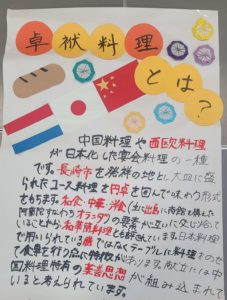 卓袱料理
とは?
中国料理や西欧料理
が日本化した宴会料理の一種
です。長崎市を発祥の地とし大皿に盛
られたコース料理を円卓を囲んで味わう形式
をもちます。和食・中華・洋食(主に出島に商館を構えた
阿蘭陀すなわちオランダ)の要素が互いに交じり合って
いることから和華蘭料理とも評されています。日本料理
で用いられている膳ではなくテーブルに料理をのせ
て食事を行う点に特徴があります。献立には中
国料理特有の薬膳思想が組み込まれて
いると考えられています。